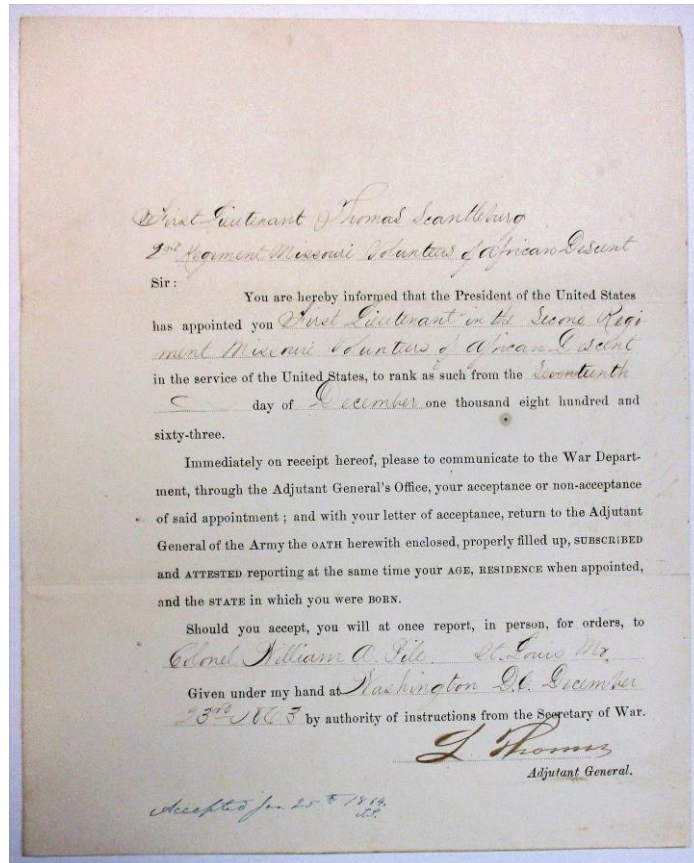 First Lieutenant Thomas Scantlebury
2nd Regiment Missouri Volunteers of African Descent
Sir :
You are hereby informed that the President of the United States
has appointed you First Lieutenant in the Second Regi
ment Missouri Volunteers of African Descent
in the service of the United States, to rank as such from the Seventeenth
day of December one thousand eight hundred and
sixty-three.
Immediately on receipt hereof, please to communicate to the War Depart-
ment, through the Adjutant General's Office, your acceptance or non-acceptance
of said appointment ; and with your letter of acceptance, return to the Adjutant
General of the Army the OATH herewith enclosed, properly filled up, SUBSCRIBED
and ATTESTED reporting at the same time your AGE, RESIDENCE when appointed,
and the STATE in which you were BORN.
Should you accept, you will at once report, in person, for orders, to
Colonel William A. Pile St. Louis Mo,
Given under my hand at Washington D.C. December
23rd 1863 by authority of instructions from the Secretary of War.
L. Thomas
Adjutant General.
Accepted Jan 25th 1864.